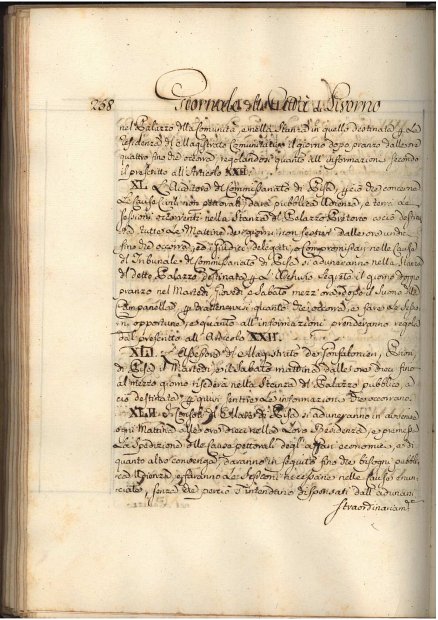 258 Giornada della Città di Livorno
nel Palazzo della Comunità, e nella Stanza in quello destinata per la
residenza del Magistrato Comunitativo il giorno dopo pranzo dalle ore
quattro fino che occorra, regolandosi quanto all'informazioni secondo
il prescritto all'Articolo XXII.
XL. L'Auditore del Commissariato di Pisa per ciò che concerne
le Cause Civili non pettorali, darà pubblica Udienza, e terrà le
sessioni occorrenti nella Stanza del Palazzo Pretorio a ciò destina-
ta tutte le Mattine dei giorni non feriati dalle ore undici
fino che occorra, ed i Giudici delegati, o Compromissari nelle Cause
del Tribunale del Commissariato di Pisa si aduneranno nella Stanza
del detto Palazzo destinata per l'Archivio Segreto il giorno dopo
pranzo nel Martedì, Giovedì, e Sabato mezz'ora dopo il Suono della
Campanella, per trattenersi quanto che occorra, e fare le sessio-
ni opportune, e quanto all'informazioni prenderanno regola
dal prescritto all'Articolo XXII.
XLI. L'Assessore del Magistrato dei Gonfalonieri, e Priori
di Pisa il Martedì, e il Sabato mattina dalle ore dieci fino
al mezzo giorno risederà nella Stanza del Palazzo pubblico, a
ciò destinata per quivi sentire le informazioni che occorrano.
XLII. I Consoli del Mare di Pisa si aduneranno in
ogni Mattina alle ore dieci nella Loro Residenza, e premessa
la Spedizione delle Cause pettorali degl'affari economici, e di
quanto altro convenga, daranno in seguito fino che bisogni pubbli-
ca Udienza, e faranno le Sessioni necessarie nelle Cause
senza che perciò s'intendano dispensati dall'adunarsi
straordinariam.te